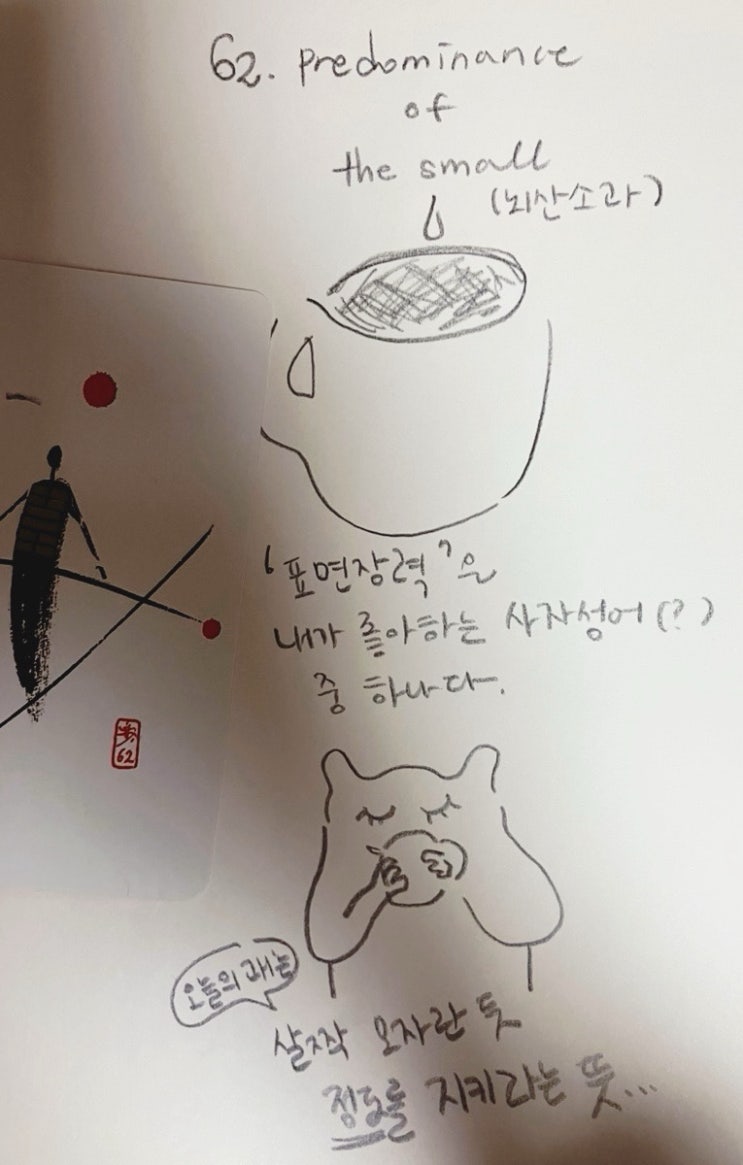 62. predominance
of
the small
(뇌산소과)
'표면장력'은
내가 좋아하는 사자성어(?)
중 하나다.
오늘의 괘는
살짝 모자란 듯
정도를 지키라는 뜻...
62